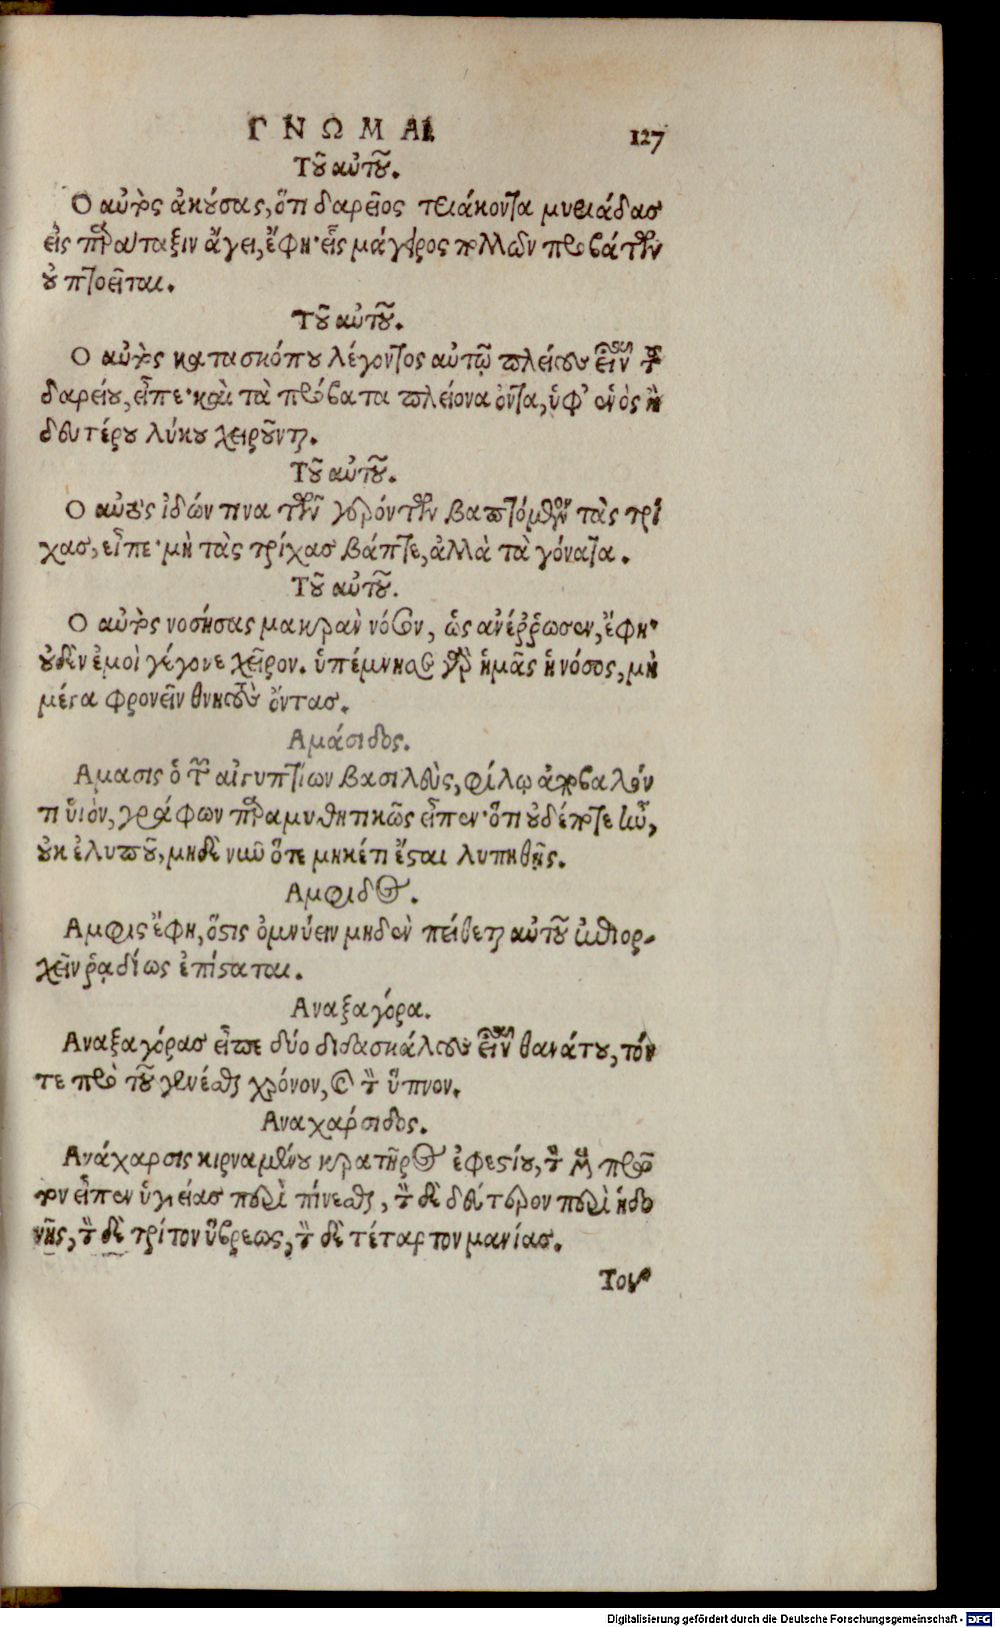 ΓΝΩΜΑΙ 127
Τοῦ αὐτοῦ.
Ο αὐτὸς ἀκούσας, ὅτι δαρεῖος τριάκοντα μυριάδας
εἰς παράταξιν ἄγει, ἔφη· εἷς μάγειρος πολλῶν προβάτων
οὐ πτοεῖται.
Τοῦ αὐτοῦ.
Ο αὐτὸς κατασκόπου λέγοντος αὐτῷ πλείους εἶναι τοὺς
δαρείου, εἶπε· καὶ τὰ πρόβατα πλείονα ὄντα, ὑφ' ἑνὸς ἢ
δευτέρου λύκου χειροῦνται.
Τοῦ αὐτοῦ.
Ο αὐτὸς ἰδών τινα τῶν γερόντων βαπτόμενον τὰς τρί
χας, εἶπε· μὴ τὰς τρίχας βάπτε, ἀλλὰ τὰ γόνατα.
Τοῦ αὐτοῦ.
Ο αὐτὸς νοσήσας μακρὰν νόσον, ὡς ἀνέῤῥωσεν, ἔφη·
οὐδὲν ἐμοὶ γέγονε χεῖρον. ὑπέμνησε γὰρ ἡμᾶς ἡ νόσος, μὴ
μέγα φρονεῖν θνητοὺς ὄντας.
Αμάσιδος.
Αμασις ὁ τῶν αἰγυπτίων βασιλεὺς, φίλῳ ἀποβαλόν
τι υἱὸν, γράφων παραμυθητικῶς εἶπεν· ὅτι οὐδέποτε ἦν,
οὐκ ἐλυποῦ, μηδὲ νῦν ὅτε μηκέτι ἔσται λυπηθῇς.
Αμφιδος.
Αμφις ἔφη, ὅστις ὀμνύειν μηδὲν πείθεται αὐτοῦ ἐπιορ-
κεῖν ῥᾳδίως ἐπίσταται.
Αναξαγόρα.
Αναξαγόρας εἶπε δύο διδασκάλους εἶναι θανάτου, τόν
τε πρὸ τοῦ γενέσθαι χρόνον, καὶ τὸν ὕπνον.
Αναχαρσιδος.
Ανάχαρσις κιρναμένου κρατῆρος ἐφεστίου, τὸν μὲν πρῶ
τον εἶπεν ὑγιείας περὶ πίνεσθαι, τὸν δὲ δεύτερον περὶ ἡδο
νῆς, τὸν δὲ τρίτον ὕβρεως, τὸν δὲ τέταρτον μανίας.
Τον
Digitalisierung gefördert durch die Deutsche Forschungsgemeinschaft - DFG